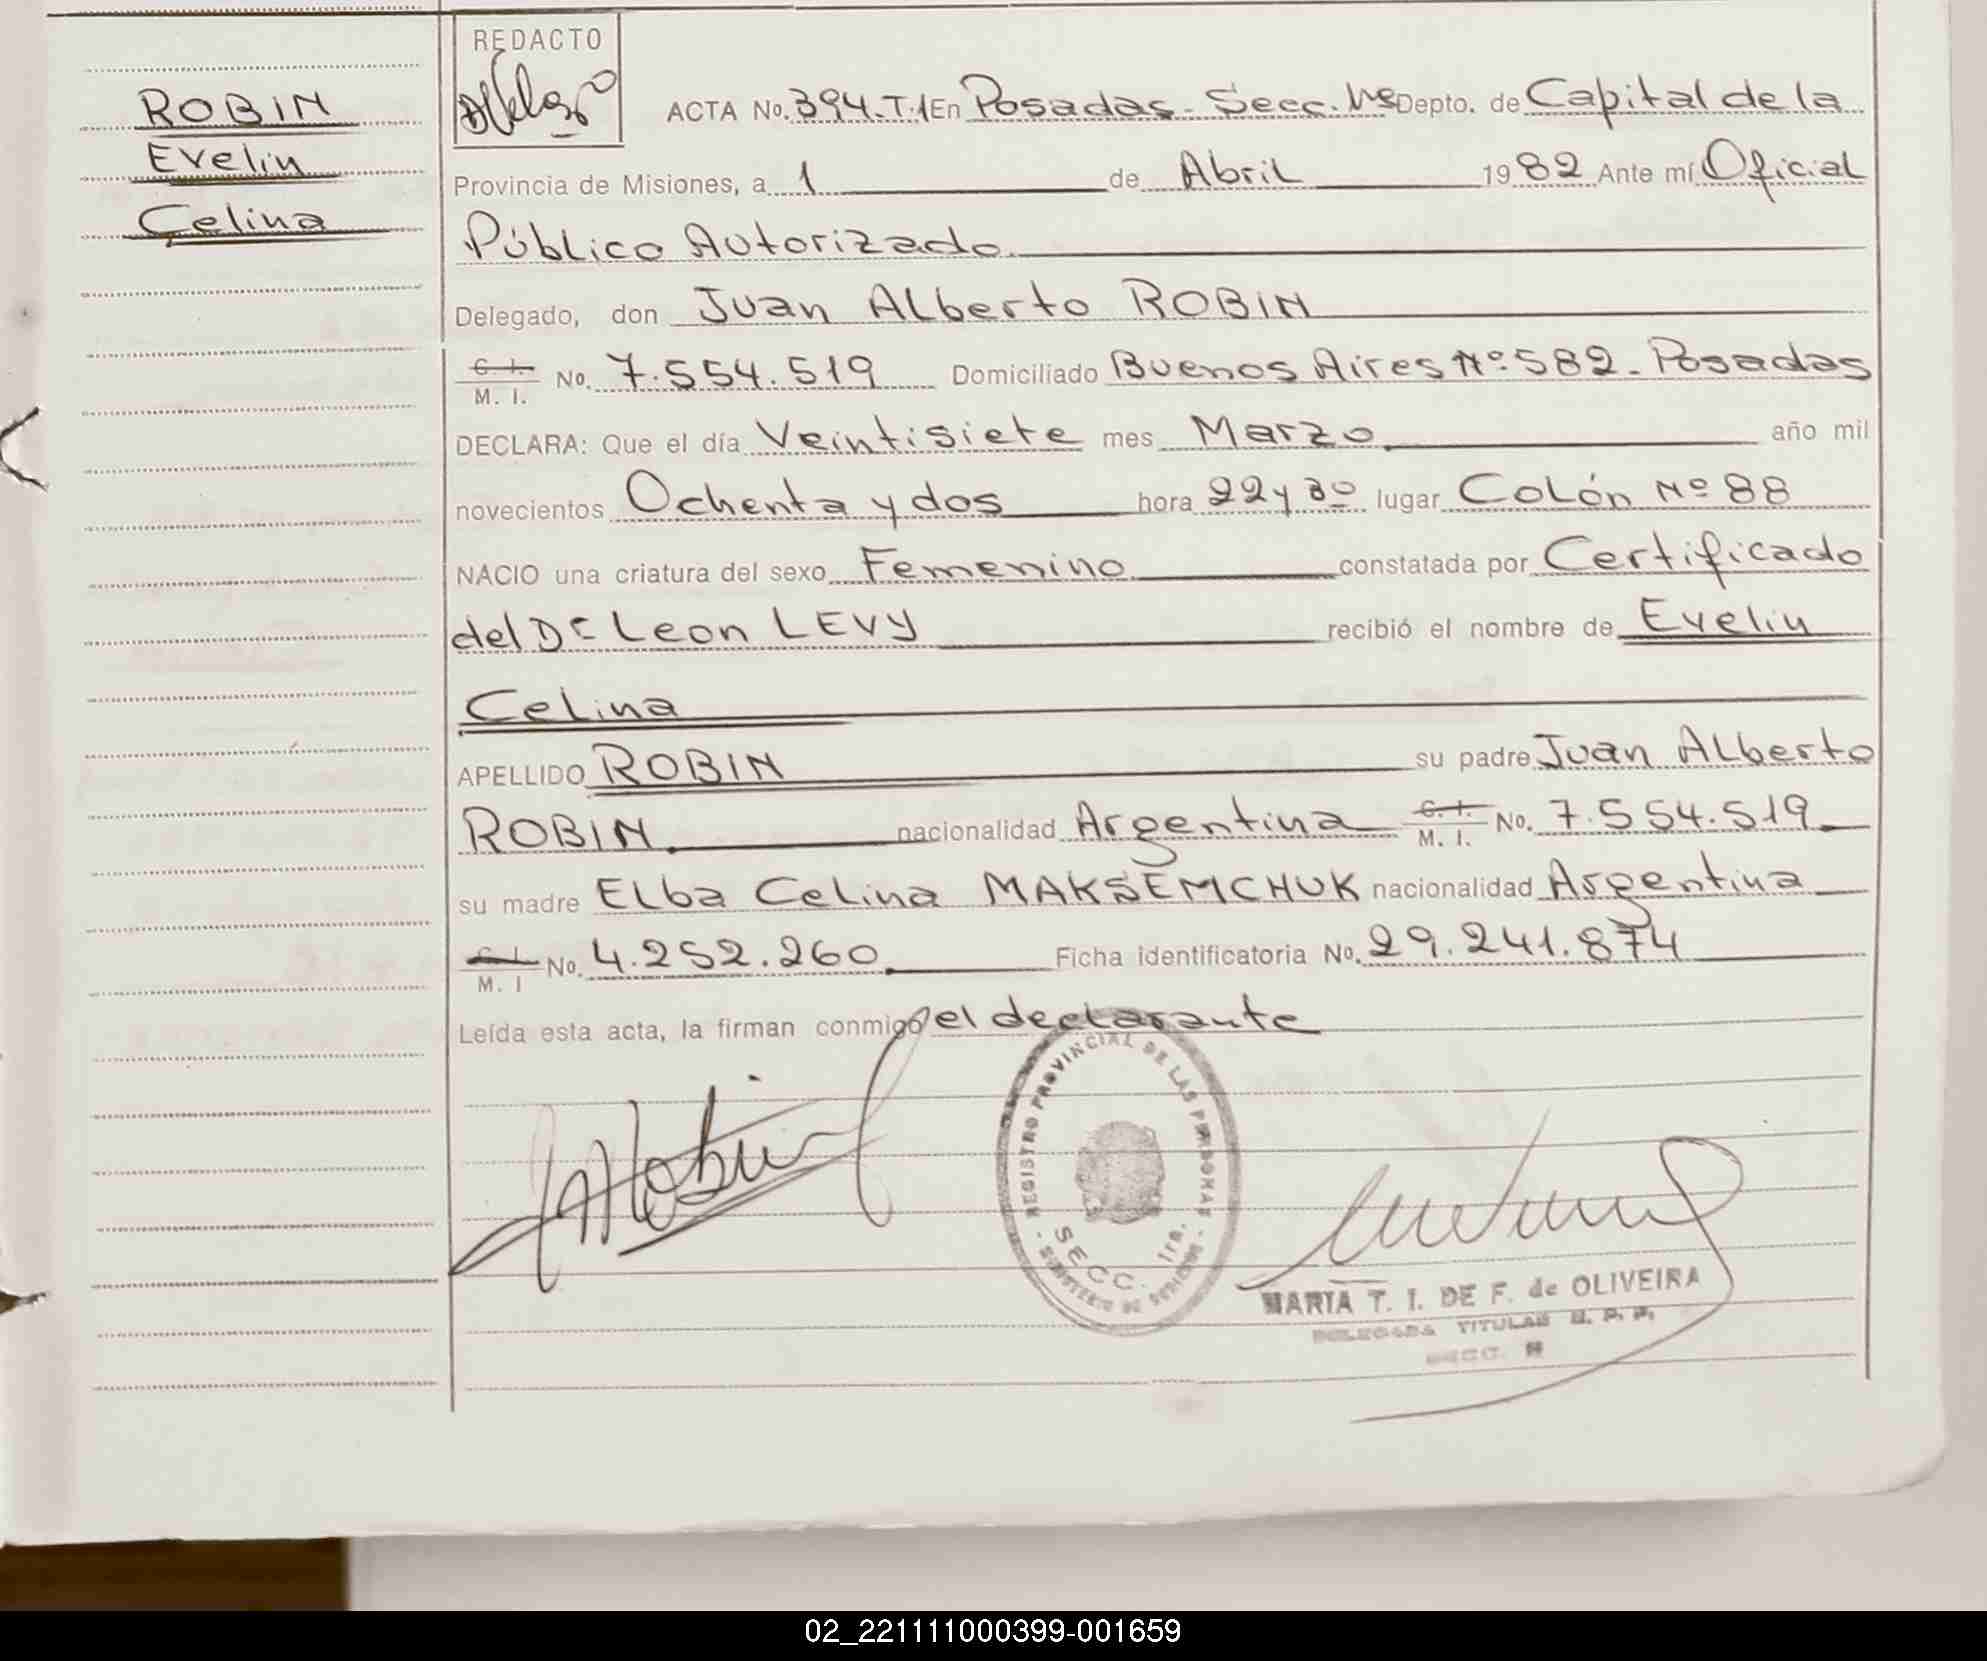 ROBIN
Evelin
Celina
REDACTO
ACTA No. 394-T.1 En Posadas - Secc. 1ra Depto. de Capital de la
Provincia de Misiones, a 1 de Abril 1982 Ante mí Oficial
Público Autorizado.
Delegado, don Juan Alberto ROBIN
C. I. M. I. No. 7.554.519 Domiciliado Buenos Aires Nº 582 - Posadas
DECLARA: Que el día Veintisiete mes Marzo año mil
novecientos Ochenta y dos hora 22 y 30 lugar Colón Nº 88
NACIO una criatura del sexo Femenino constatada por Certificado
del Dr Leon LEVY recibió el nombre de Evelin
Celina
APELLIDO ROBIN su padre Juan Alberto
ROBIN nacionalidad Argentina C. I. M. I. No. 7.554.519
su madre Elba Celina MAKSEMCHUK nacionalidad Argentina
C. I. M. I No. 4.252.260 Ficha identificatoria No. 29.241.874
Leída esta acta, la firman conmigo el declarante
REGISTRO PROVINCIAL DE LAS PERSONAS
SECC. 1ra.
MARIA T. I. DE F. de OLIVEIRA
DELEGADA TITULAR R. P. P.
SECC.
02_221111000399-001659